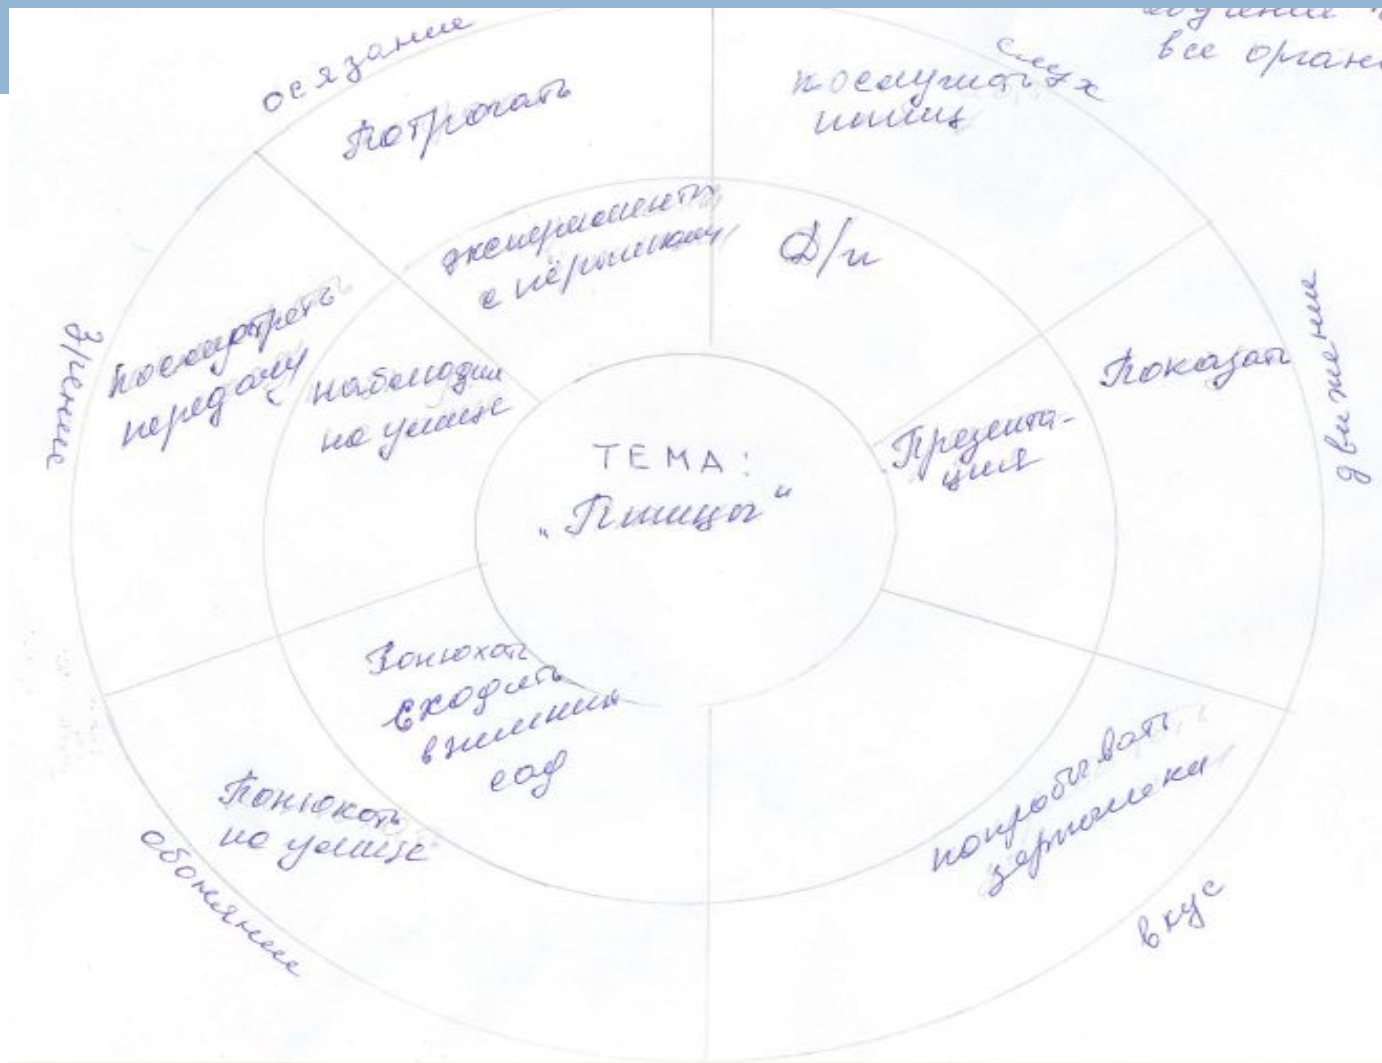 осязание
Потрогать
слух
послушать
птиц
все орган
эксперименты
с пёрышками
Д/и
зрение
посмотреть
передачу
наблюдали
на улице
ТЕМА:
„Птицы“
Презента-
ция
Показать
движение
Понюхать
сходить
в зимний
сад
Понюхать
на улице
обоняние
попробывать
зёрнышки
вкус